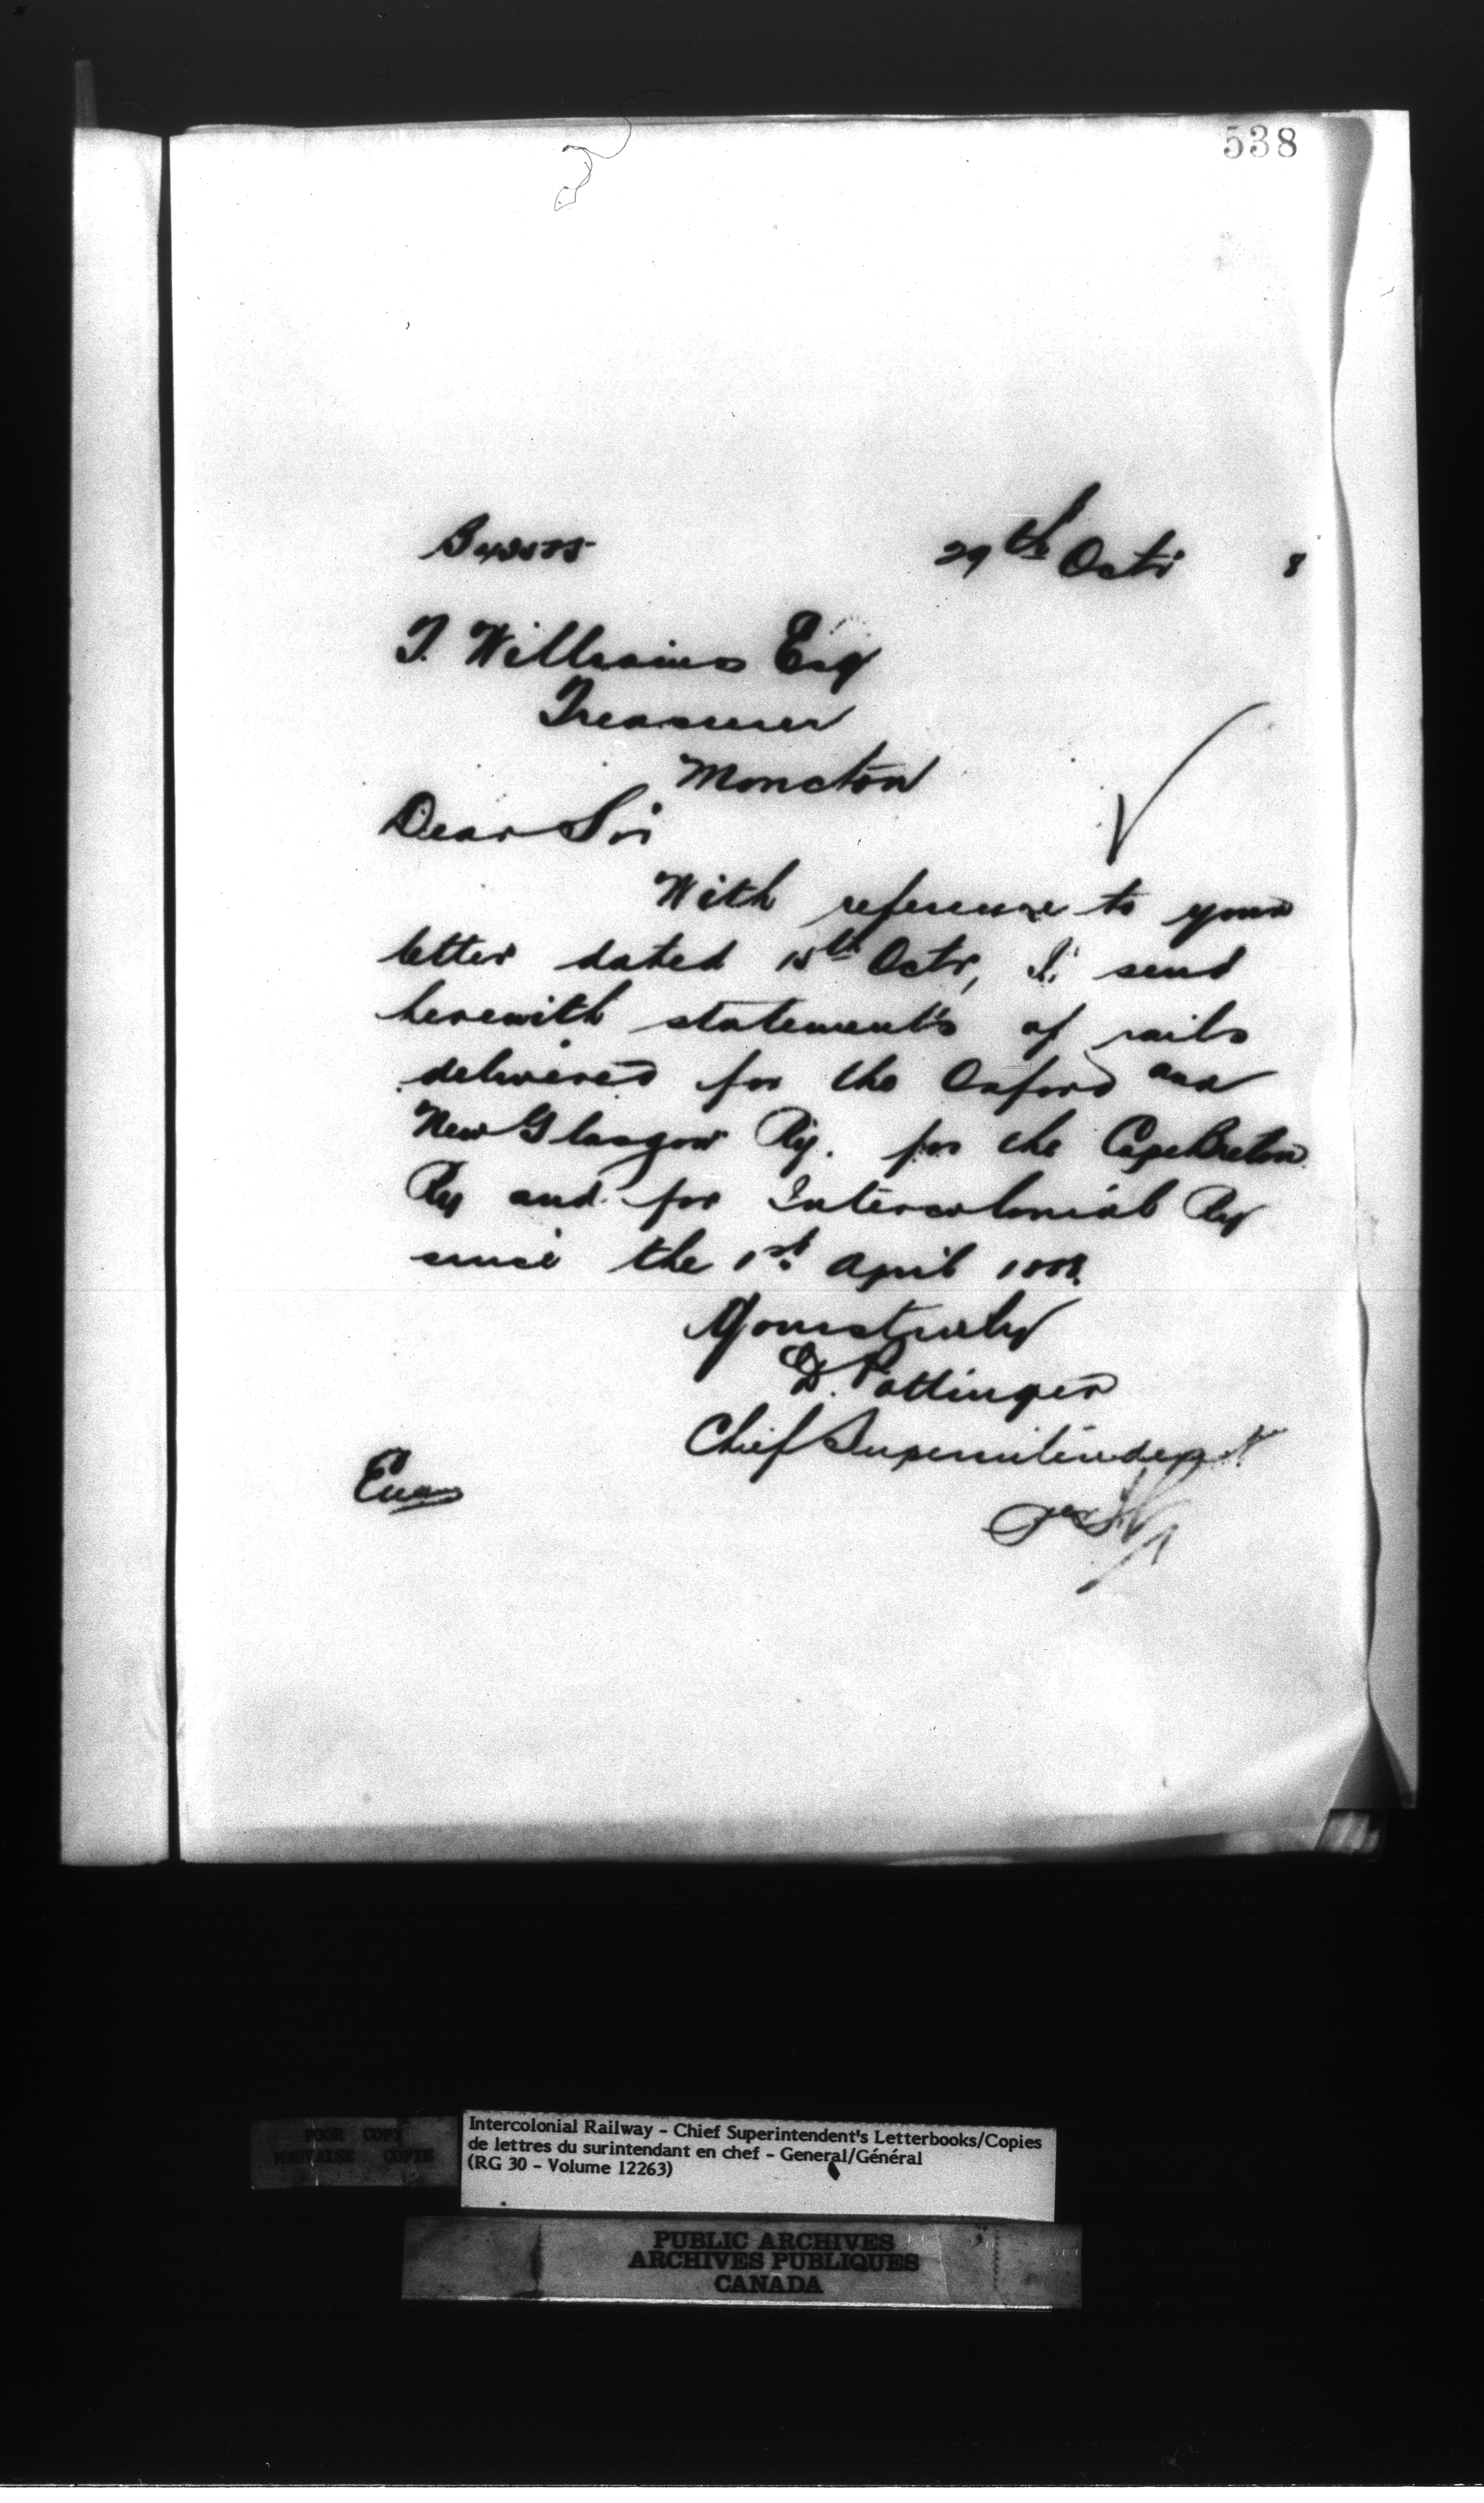 538
29th Octr 8
T. Williams Esq
Treasurer
Moncton
Dear Sir
With reference to your
letter dated 15th Octr, I send
herewith statements of rails
delivered for the Oxford and
New Glasgow Ry. for the Cape Breton
Ry and for Intercolonial Ry
since the 1st April 1888.
Yours truly
D. Pottinger
Chief Superintendent
POOR COPY
MAUVAISE COPIE
Intercolonial Railway - Chief Superintendent's Letterbooks/Copies
de lettres du surintendant en chef - General/Général
(RG 30 - Volume 12263)
PUBLIC ARCHIVES
ARCHIVES PUBLIQUES
CANADA